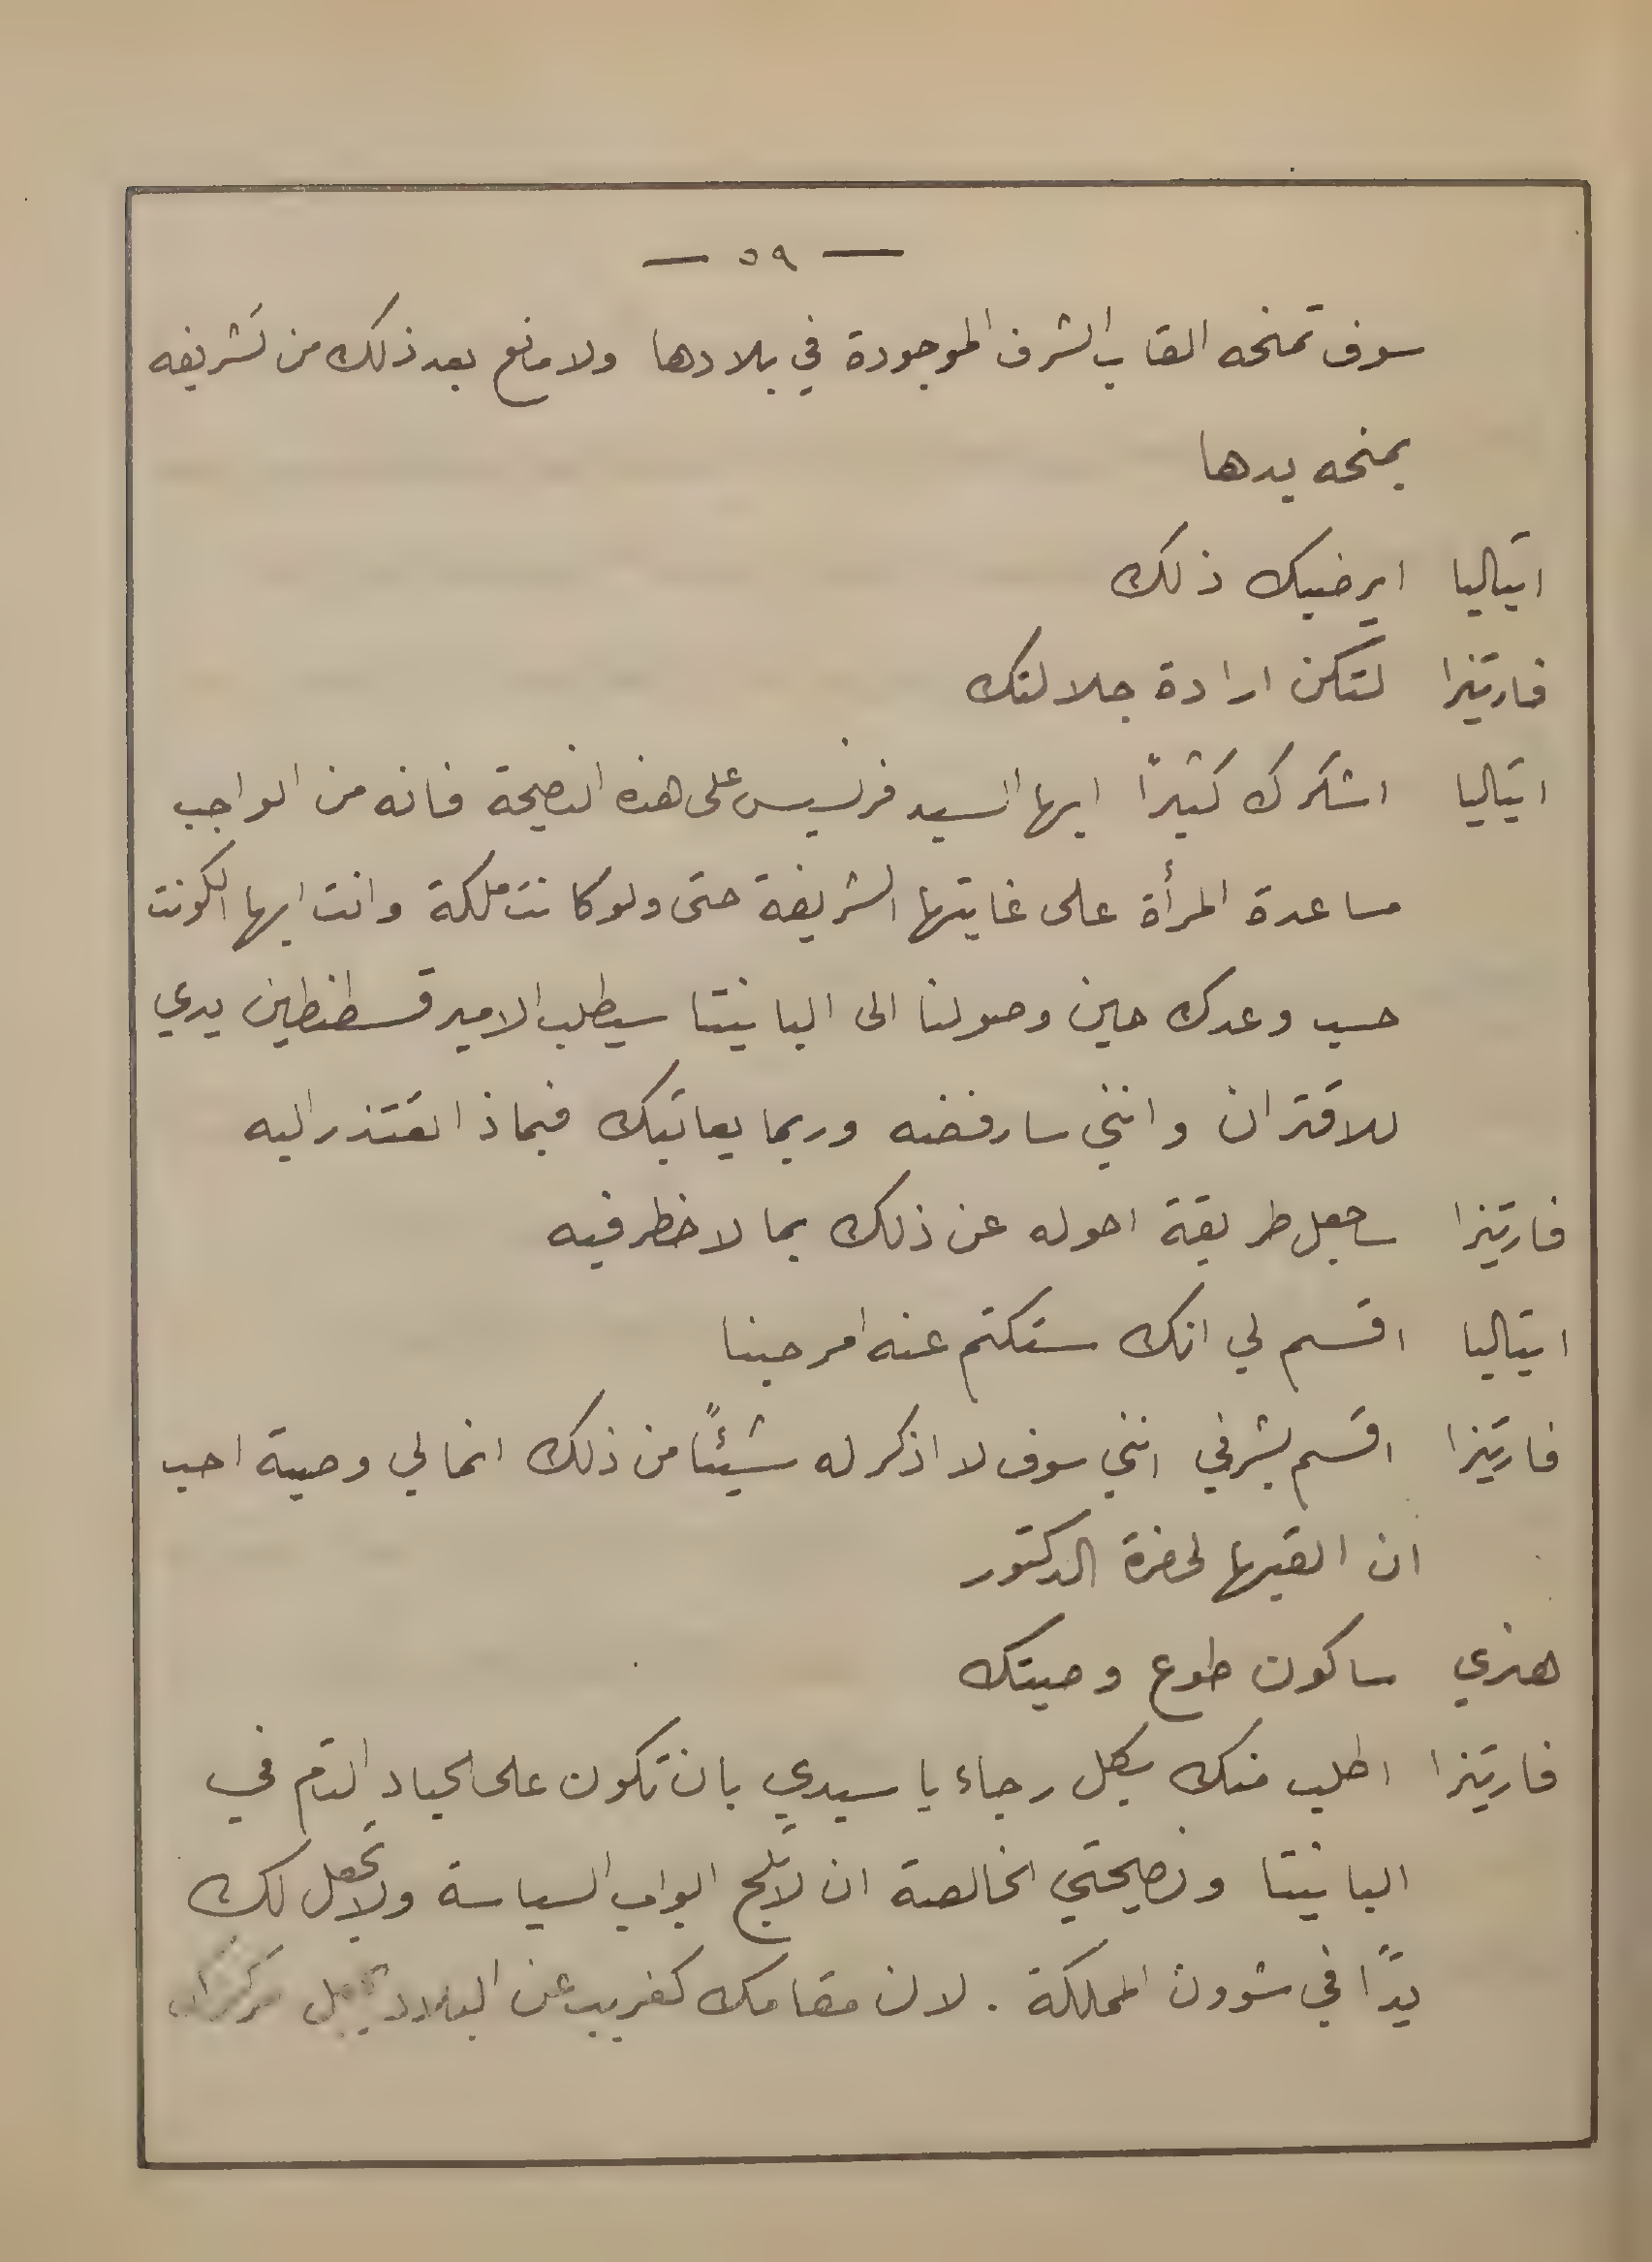 — ٥٩ —
سوف تمنحه القاب الشرف الموجودة في بلادها ولا مانع بعد ذلك من تشريفه
بمنحه يدها
ايتاليا ايرضيك ذلك
فارتيزا لتكن ارادة جلالتك
ايتاليا اشكرك كثيرًا ايها السيد فرنسيس على هذه النصيحة فانه من الواجب
مساعدة المرأة على غايتها الشريفة حتى ولو كانت ملكة وانت ايها الكونت
حسب وعدك حين وصولنا الى البانيتا سيطلب الامير قسطنطين يدي
للاقتران وانني سارفضه وربما يعاتبك فبماذا تعتذر اليه
فارتيزا ساجعل طريقة احوله عن ذلك بما لا خطر فيه
ايتاليا اقسم لي انك ستكتم عنه امر حبنا
فارتيزا اقسم بشرفي انني سوف لا اذكر له شيئًا من ذلك انما لي وصية احب
ان القيها لحضرة الدكتور
هنري ساكون طوع وصيتك
فارتيزا اطلب منك بكل رجاء يا سيدي بان تكون على الحياد التام في
البانيتا ونصيحتي الخالصة ان لا تلج ابواب السياسة ولا تجعل لك
يدًا في شوون المملكة . لان مقامك كغريب عن البلاد